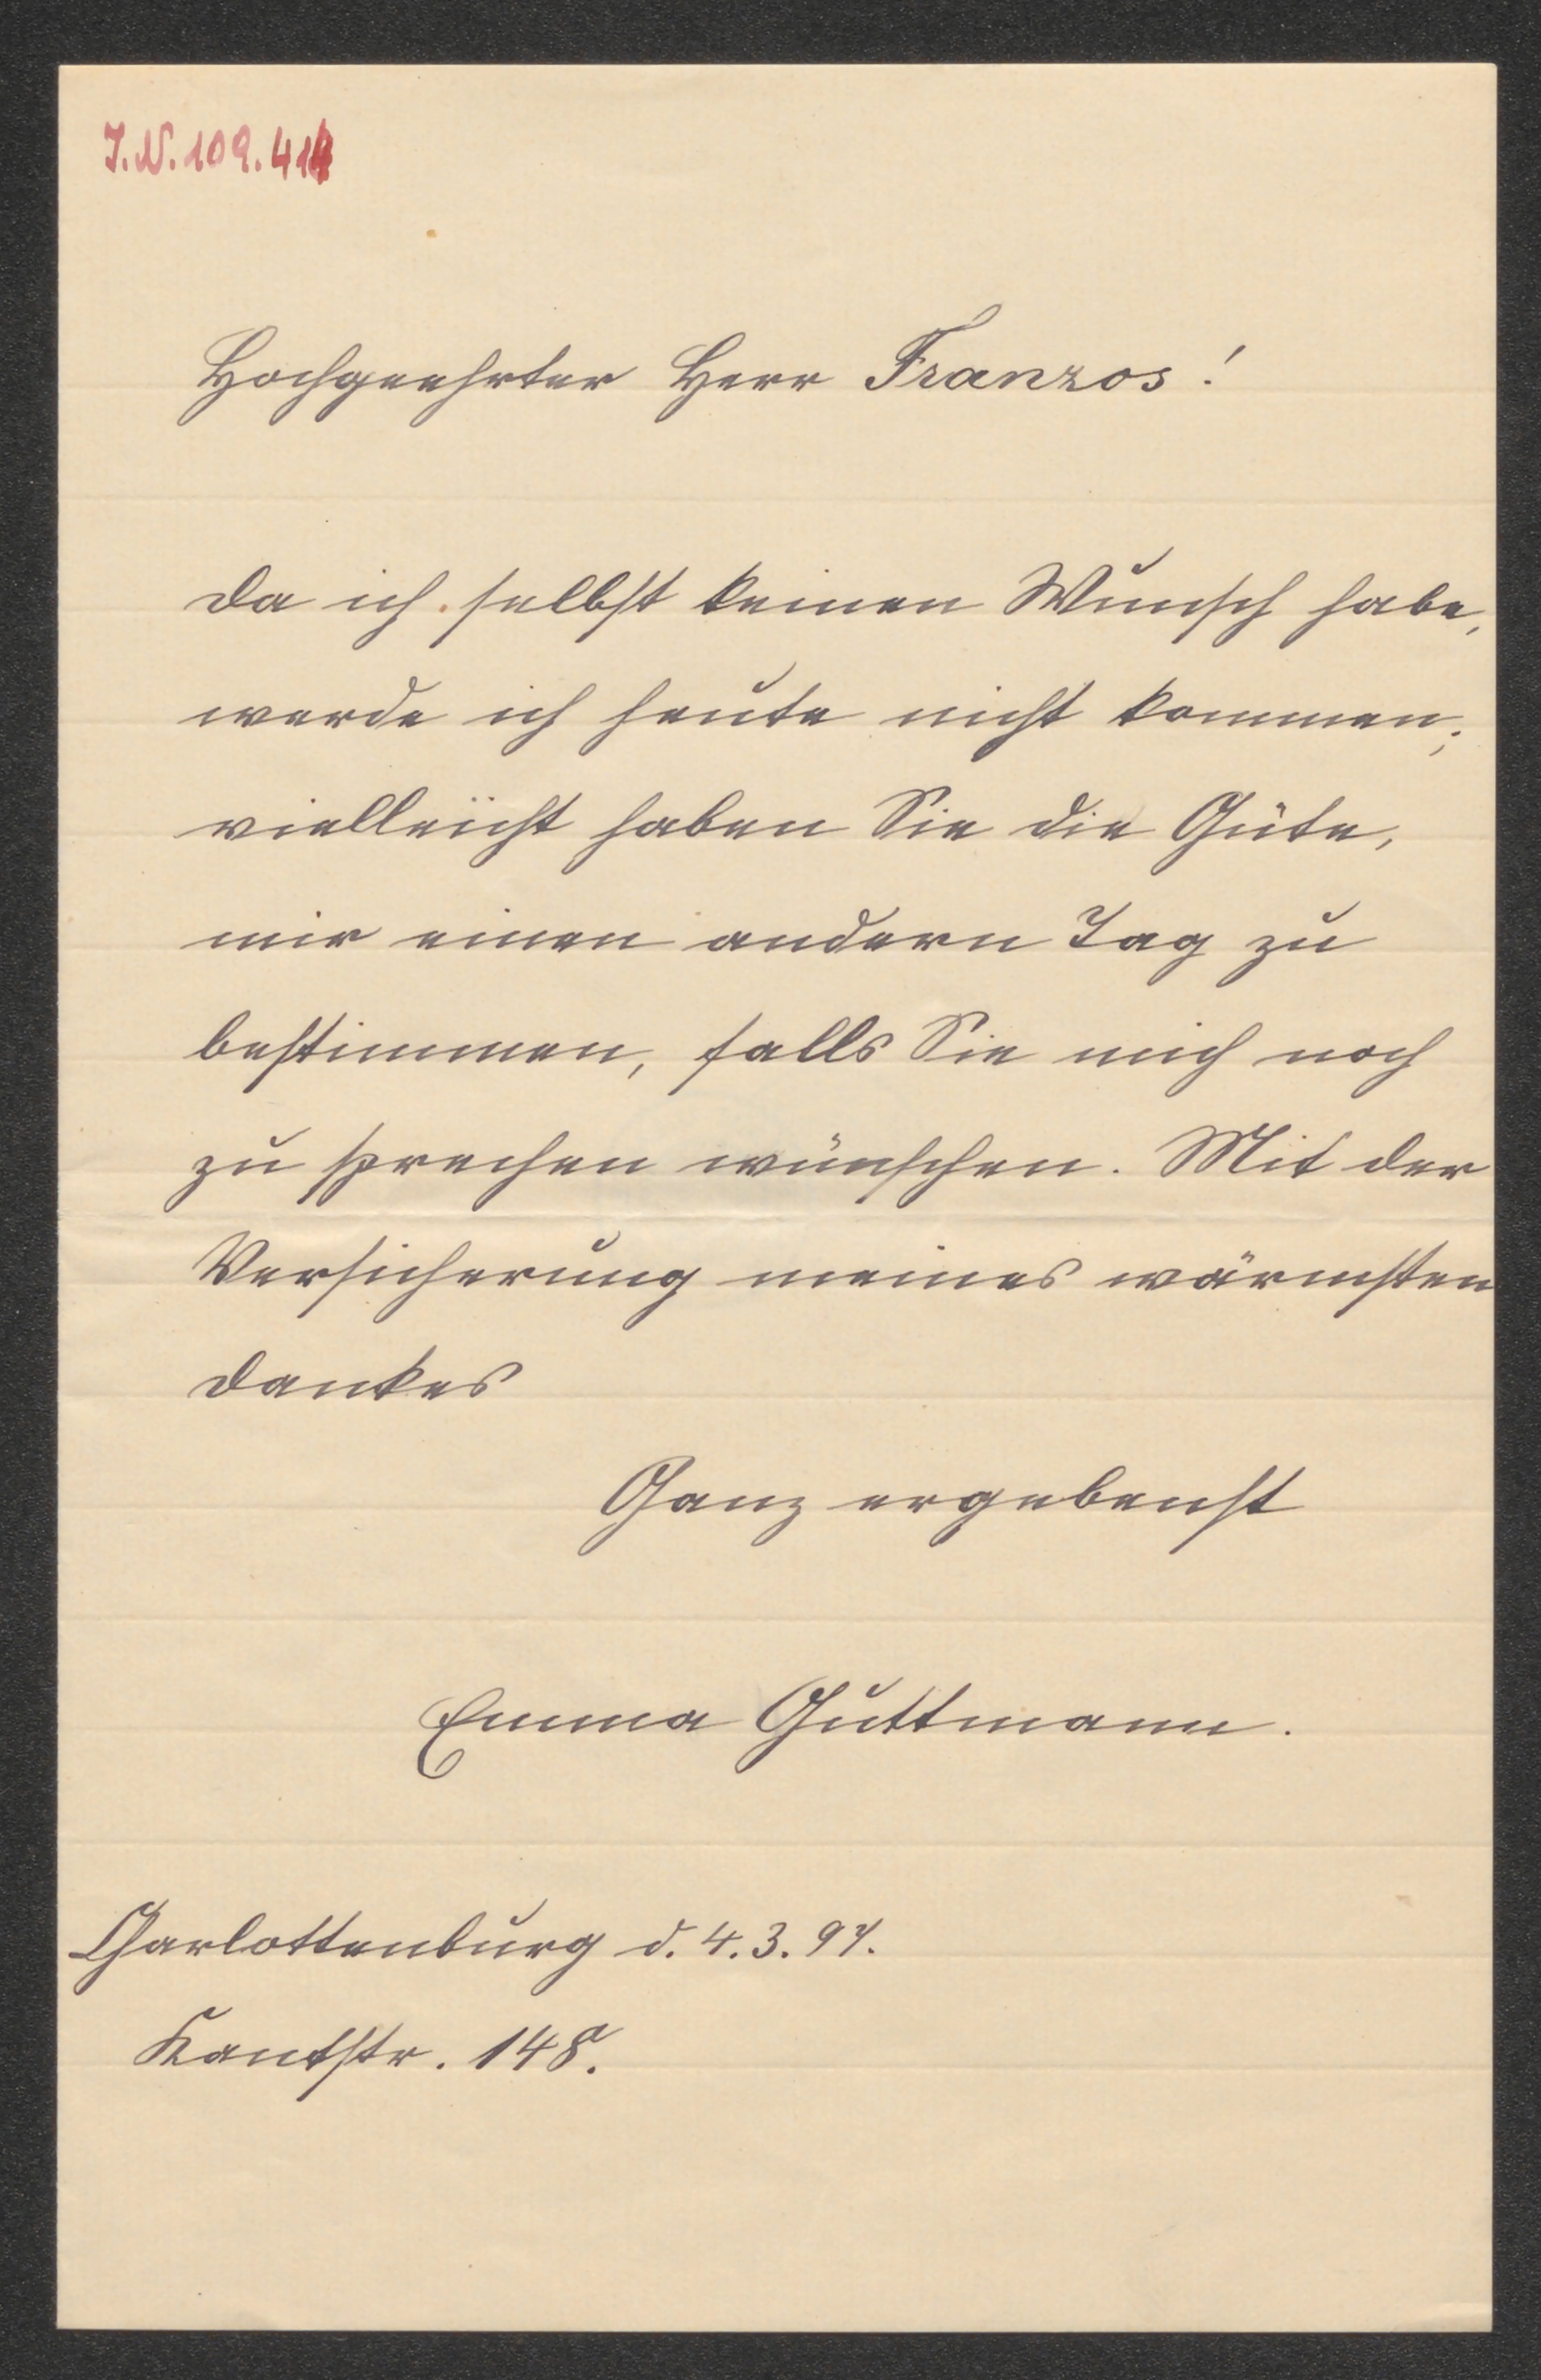 J.N. 109.414
Hochgeehrter Herr Franzos!
da ich selbst keinen Wunsch habe,
werde ich heute nicht kommen;
vielleicht haben Sie die Güte,
mir einen andern Tag zu
bestimmen, falls Sie mich noch
zu sprechen wünschen. Mit der
Versicherung meines wärmsten
Dankes
Ganz ergebenst
Emma Guttmann.
Charlottenburg d. 4.3.97.
Kantstr. 148.